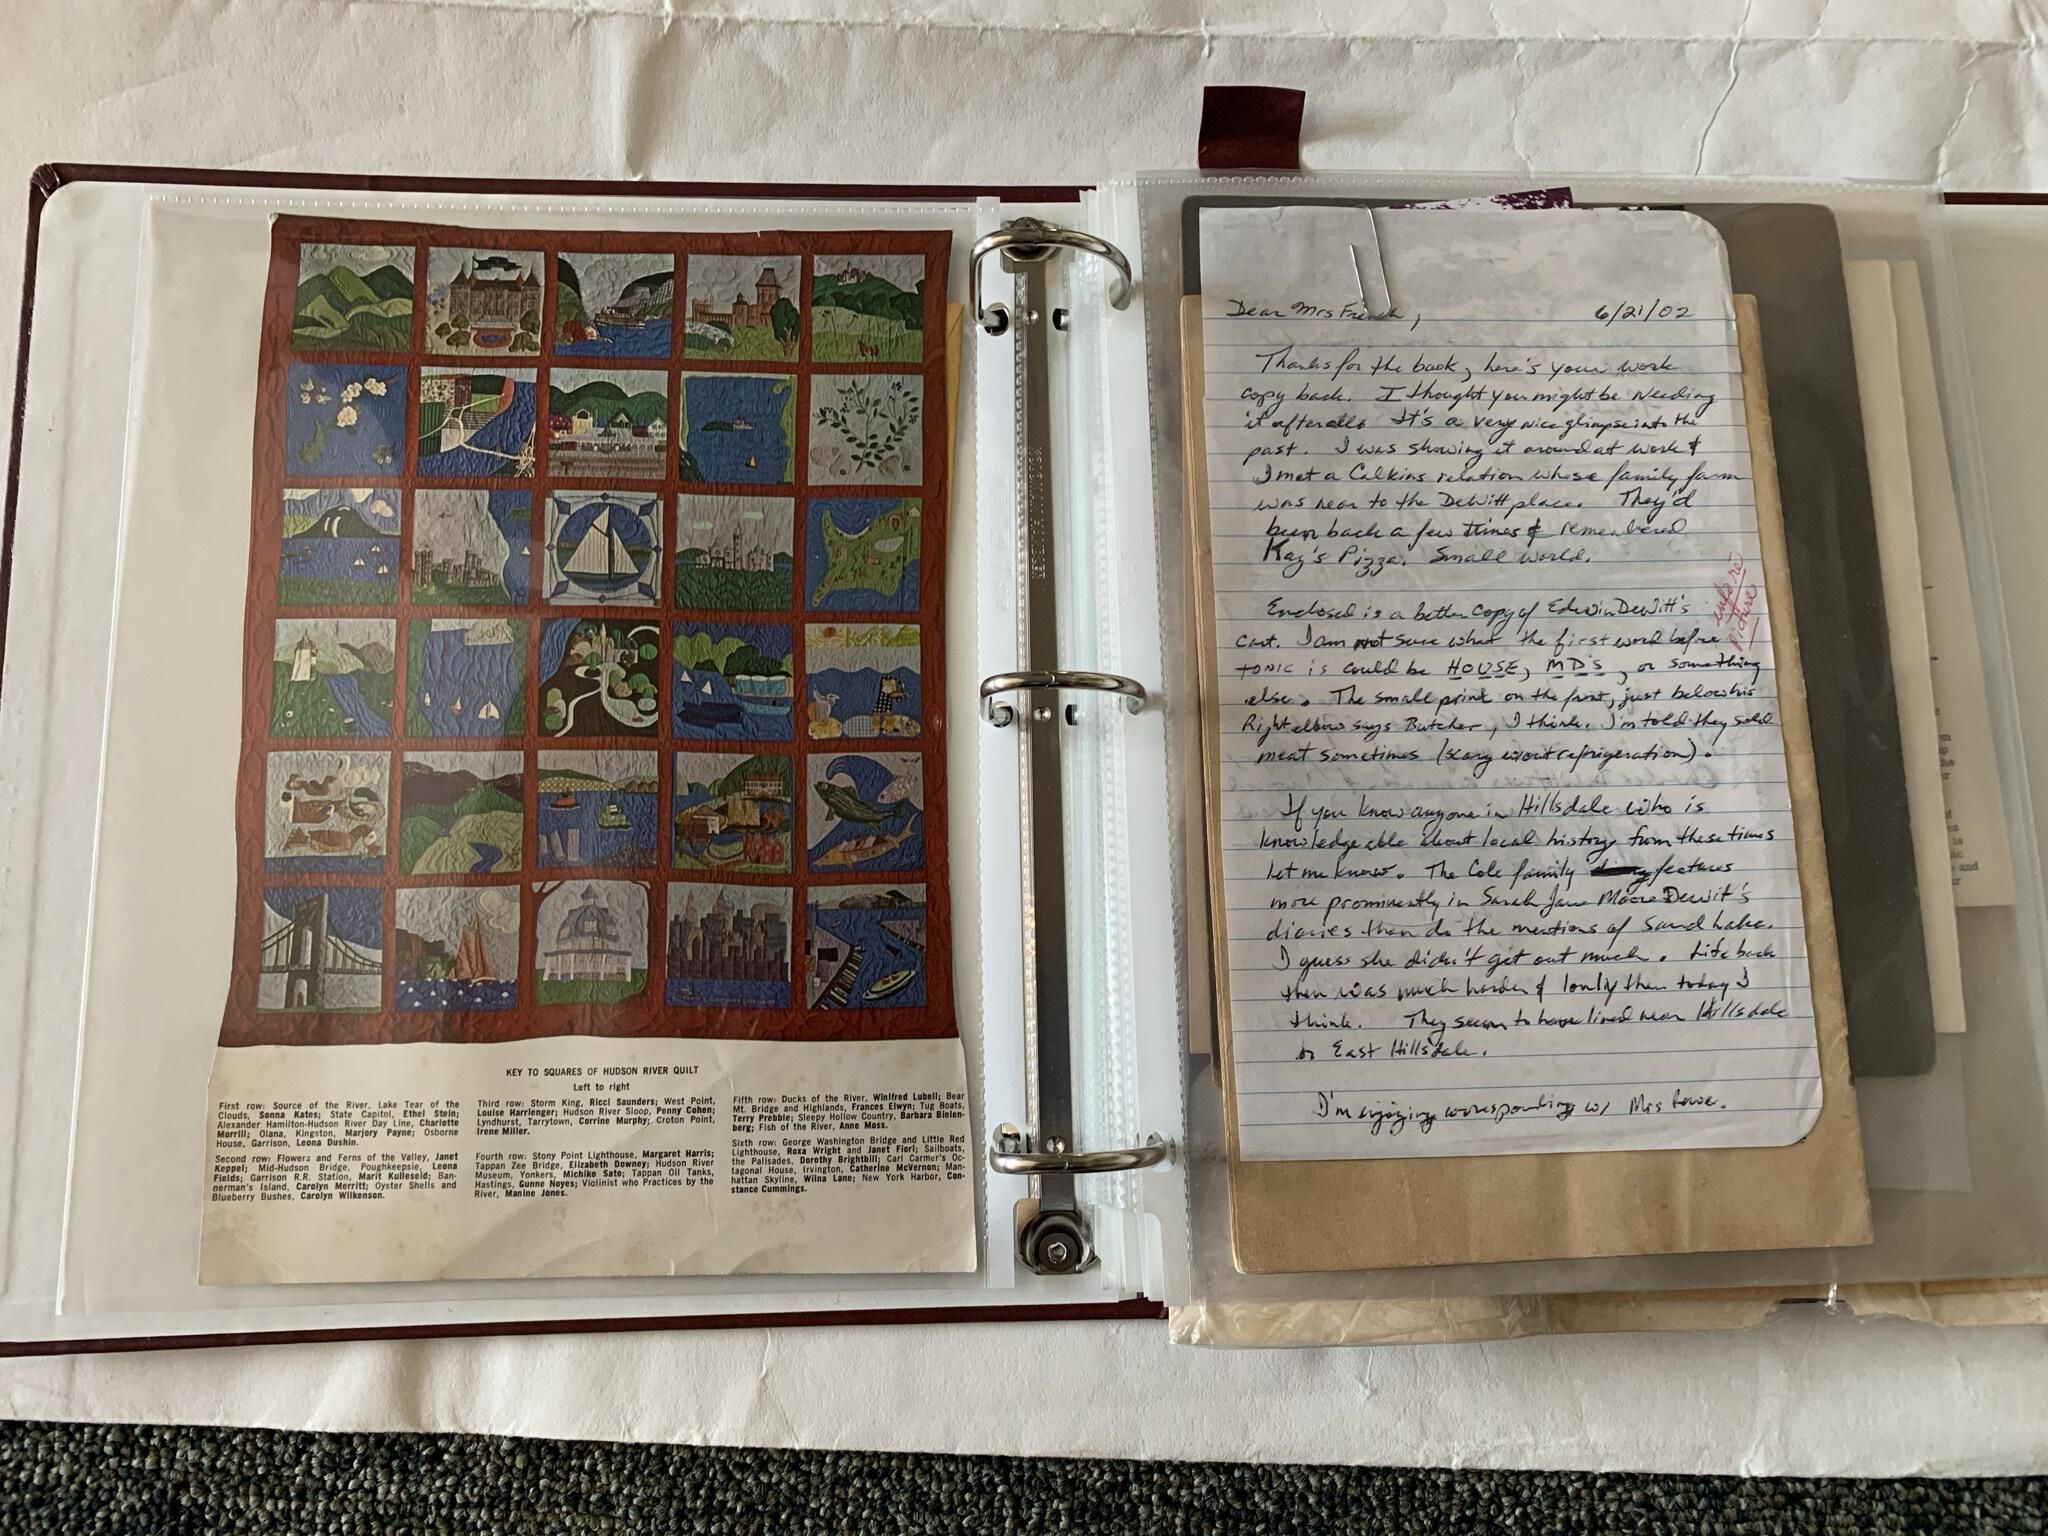 KEY TO SQUARES OF HUDSON RIVER QUILT
Left to right
First row: Source of the River, Lake Tear of the
Clouds, Sonna Kates; State Capitol, Ethel Stein;
Alexander Hamilton-Hudson River Day Line, Charlotte
Morrill; Olana, Kingston, Marjory Payne; Osborne
House, Garrison, Leona Dushin.
Second row: Flowers and Ferns of the Valley, Janet
Keppel; Mid-Hudson Bridge, Poughkeepsie, Leona
Fields; Garrison R.R. Station, Marit Kulleseid; Ban-
nerman's Island, Carolyn Merritt; Oyster Shells and
Blueberry Bushes, Carolyn Wilkenson.
Third row: Storm King, Ricci Saunders; West Point,
Louise Harrienger; Hudson River Sloop, Penny Cohen;
Lyndhurst, Tarrytown, Corrine Murphy; Croton Point,
Irene Miller.
Fourth row: Stony Point Lighthouse, Margaret Harris;
Tappan Zee Bridge, Elizabeth Downey; Hudson River
Museum, Yonkers, Michiko Sato; Tappan Oil Tanks,
Hastings, Gunne Noyes; Violinist who Practices by the
River, Manine Jones.
Fifth row: Ducks of the River, Winifred Lubell; Bear
Mt. Bridge and Highlands, Frances Elwyn; Tug Boats,
Terry Prebble; Sleepy Hollow Country, Barbara Bielen-
berg; Fish of the River, Anne Moss.
Sixth row: George Washington Bridge and Little Red
Lighthouse, Roxa Wright and Janet Fiori; Sailboats,
the Palisades, Dorothy Brightbill; Carl Carmer's Oc-
tagonal House, Irvington, Catherine McVernon; Man-
hattan Skyline, Wilna Lane; New York Harbor, Con-
stance Cummings.
Dear Mrs French, 6/21/02
Thanks for the book, here's your work
copy back. I thought you might be needing
it afterall. It's a very nice glimpse into the
past. I was showing it around at work &
I met a Calkins relation whose family farm
was near to the DeWitt place. They'd
been back a few times & remembered
Kay's Pizza. Small world.
Enclosed is a better copy of Edwin DeWitt's
cart. I am not sure what the first word before
TONIC is could be HOUSE, MD'S, or something
else. The small print on the front, just below his
Right elbow says Butcher, I think. I'm told they sold
meat sometimes (scary w/out refrigeration).
info re
picture
If you know anyone in Hillsdale who is
knowledgeable about local history from these times
let me know. The Cole family features
more prominently in Sarah Jane Moore Dewit's
diaries than do the mentions of Sand Lake.
I guess she didn't get out much. Life back
then was much harder & lonly then today I
think. They seem to have lived near Hillsdale
or East Hillsdale.
I'm enjoying corresponding w/ Mrs Lowe.